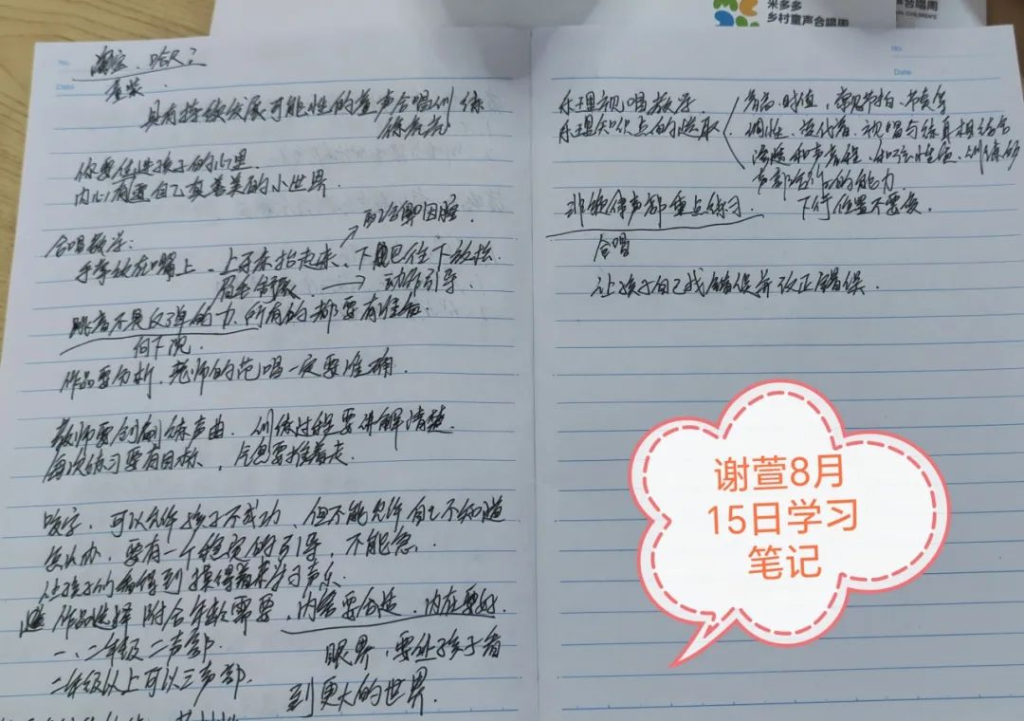 米多多
乡村童声合唱周
No.
Date
童装
具有持续发展可能性的童声合唱训练
你要住进孩子的心里
内心有画自己真善美的小世界.
合唱教学:
手掌放在嘴上、上牙床抬起来、下巴往下放松.
→ 动作引导.
跳音不是反弹的力.所有的都要有准备.
向下沉.
作品要分析.老师的范唱一定要准确.
教师要创制练声曲.训练过程要讲解清楚.
每次练习要有目标、气息要推着走.
咬字,可以允许孩子不成功、但不能允许自己不知道
怎么办,要有一个稳定的引导,不能急.
让孩子们看得到摸得着来学习声乐.
作品选择附合年龄需要、内容要合适、内在要好.
一、二年级二声部.
二年级以上可以三声部.
眼界,要让孩子看
到更大的世界.
No.
Date
乐理视唱教学.
乐理知识点的选取.
音高.时值,节拍、节奏
调性、变化音、视唱与练耳相结合
声部合作的能力
非旋律声部重点练习.
下行位置不要变.
合唱
让孩子自己找错误并改正错误.
谢萱8月
15日学习
笔记